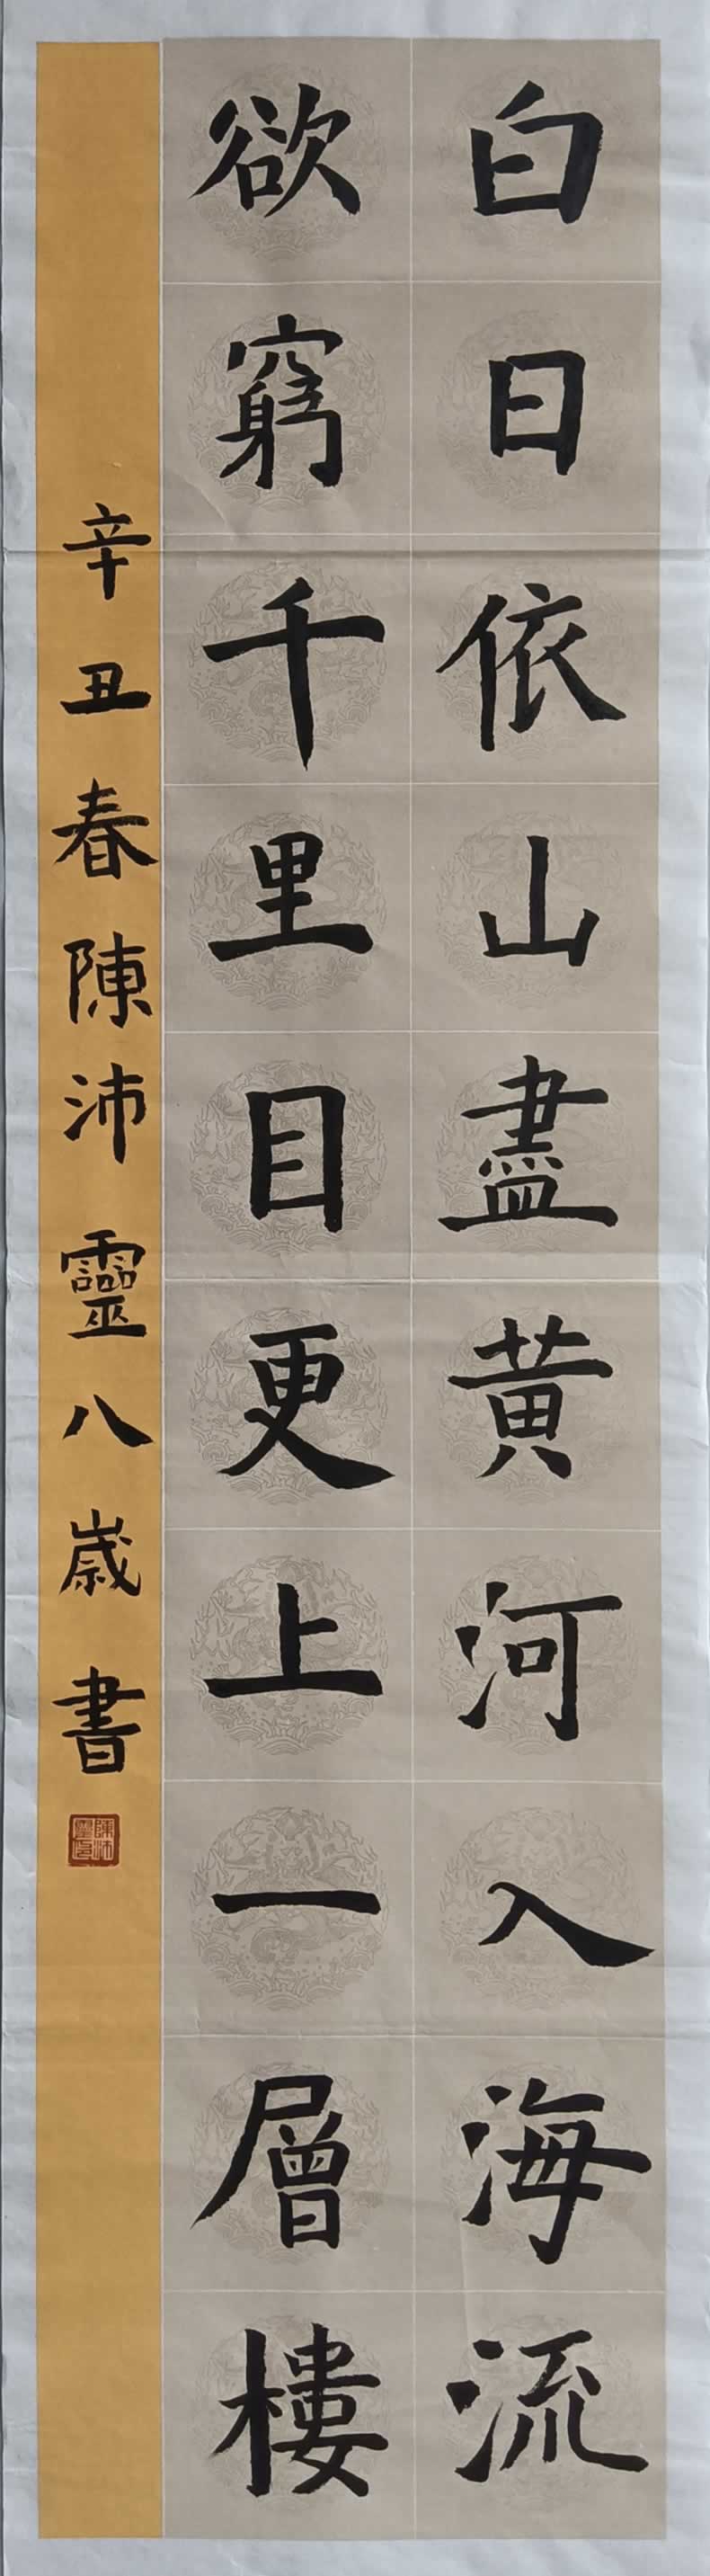 白日依山盡黃河入海流
欲窮千里目更上一層樓
辛丑春陳沛靈八歲書